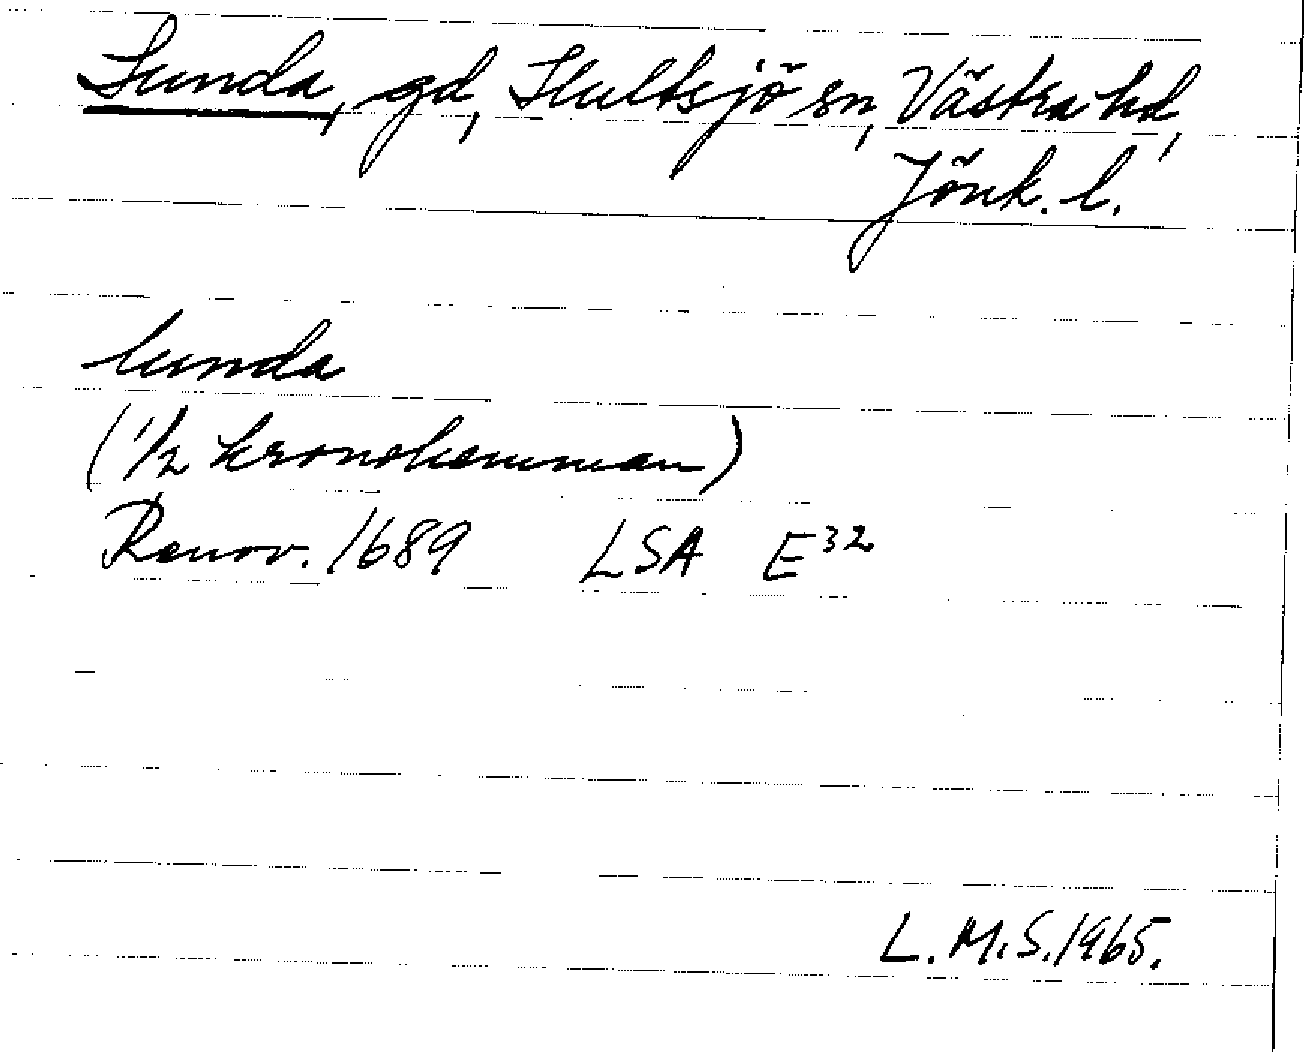 Lunda, gd, Hultsjö sn, Västra hd,
Jönk. l.
lunda
(1/2 kronohemman)
Renov. 1689 LSA E32
L.M.S. 1965.